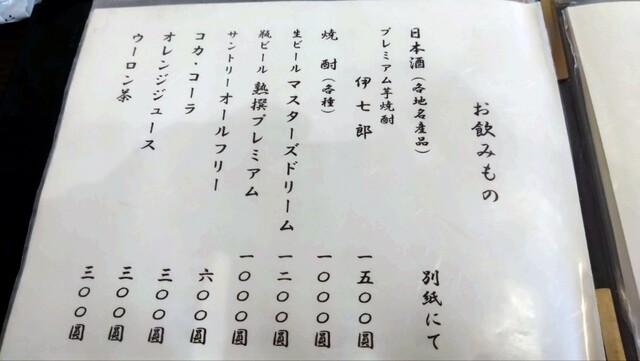 お飲みもの
日本酒（各地名産品） 別紙にて
プレミアム芋焼酎
伊七郎 一五〇〇圓
焼酎（各種） 一〇〇〇圓
生ビール マスターズドリーム 一二〇〇圓
瓶ビール 熟撰プレミアム 一〇〇〇圓
サントリーオールフリー 六〇〇圓
コカ・コーラ 三〇〇圓
オレンジジュース 三〇〇圓
ウーロン茶 三〇〇圓